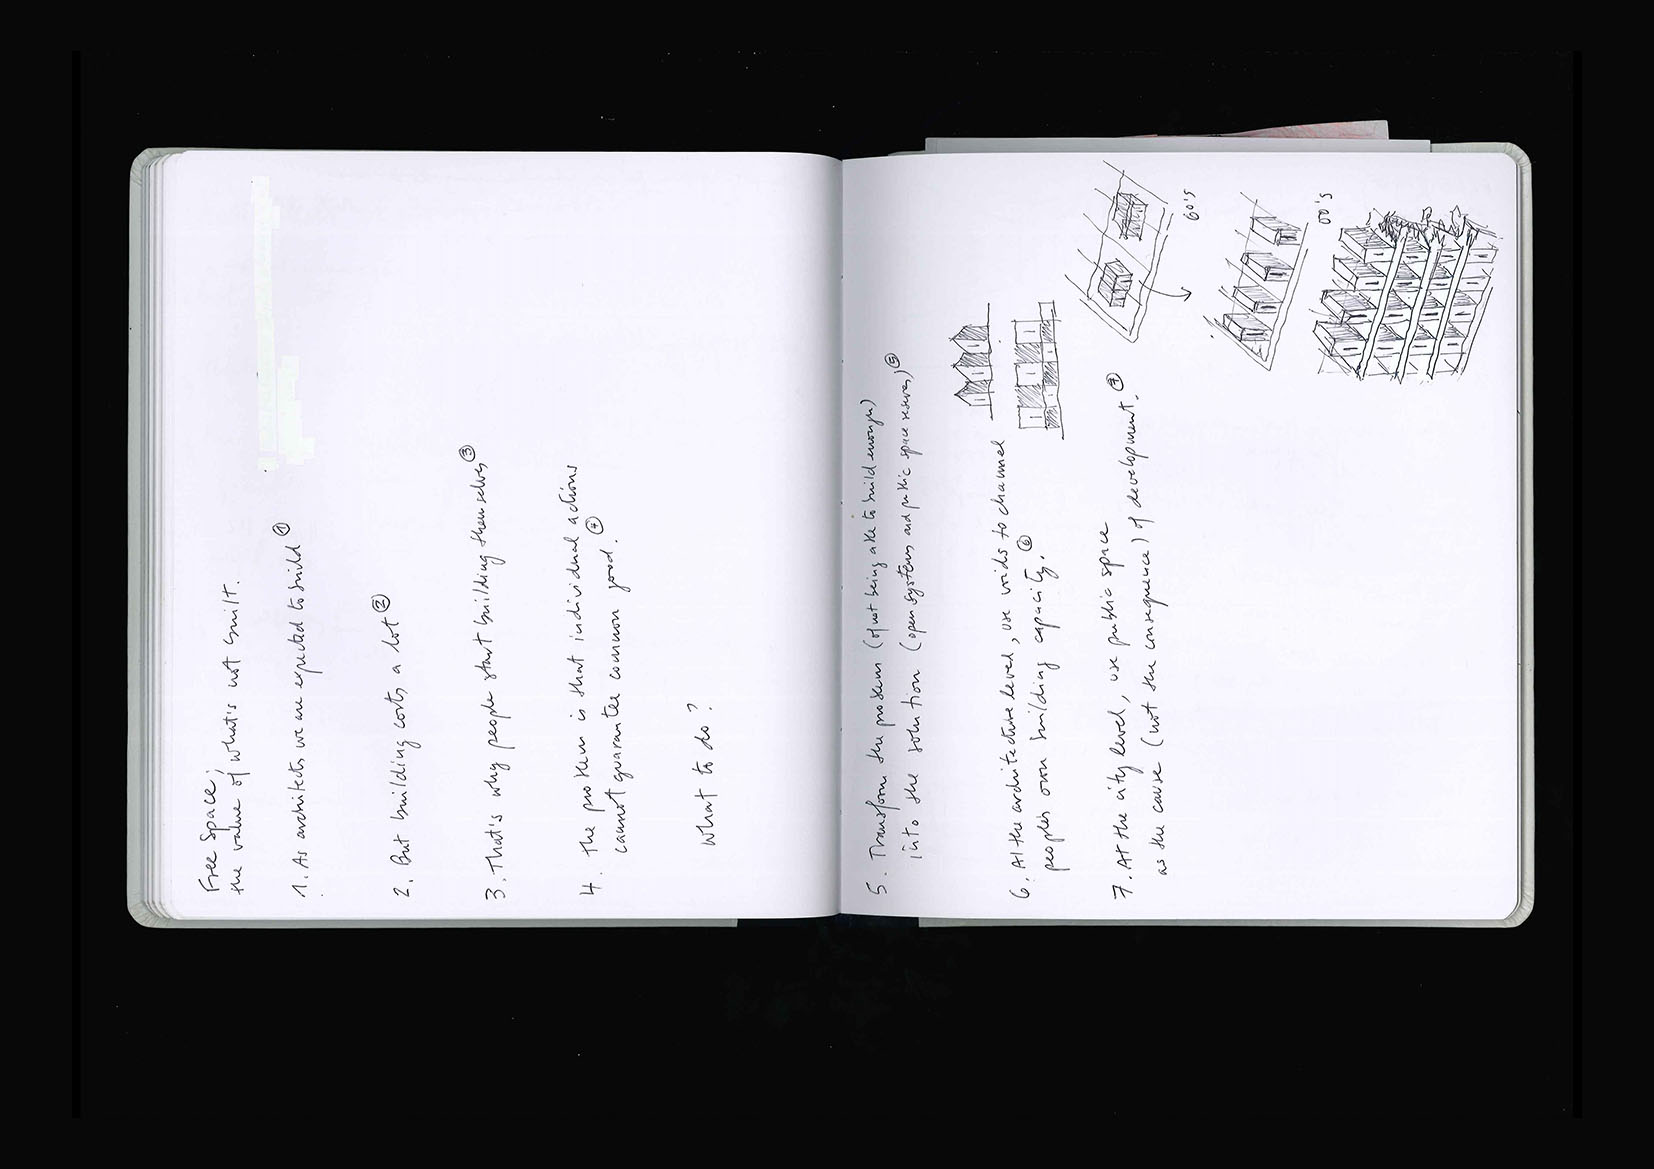 Free Space;
the value of what's not built.
1. As architects we are expected to build ①
2. But building costs a lot ②
3. That's why people start building themselves ③
4. the problem is that individual actions
cannot guarantee common good. ④
what to do?
5. Transform the problem (of not being able to build enough)
into the solution (open systems and public space reserves) ⑤
6. At the architecture level, use voids to channel
peoples own building capacity. ⑥
7. At the city level, use public space
as the cause (not the consequence) of development. ⑦
60's
00's